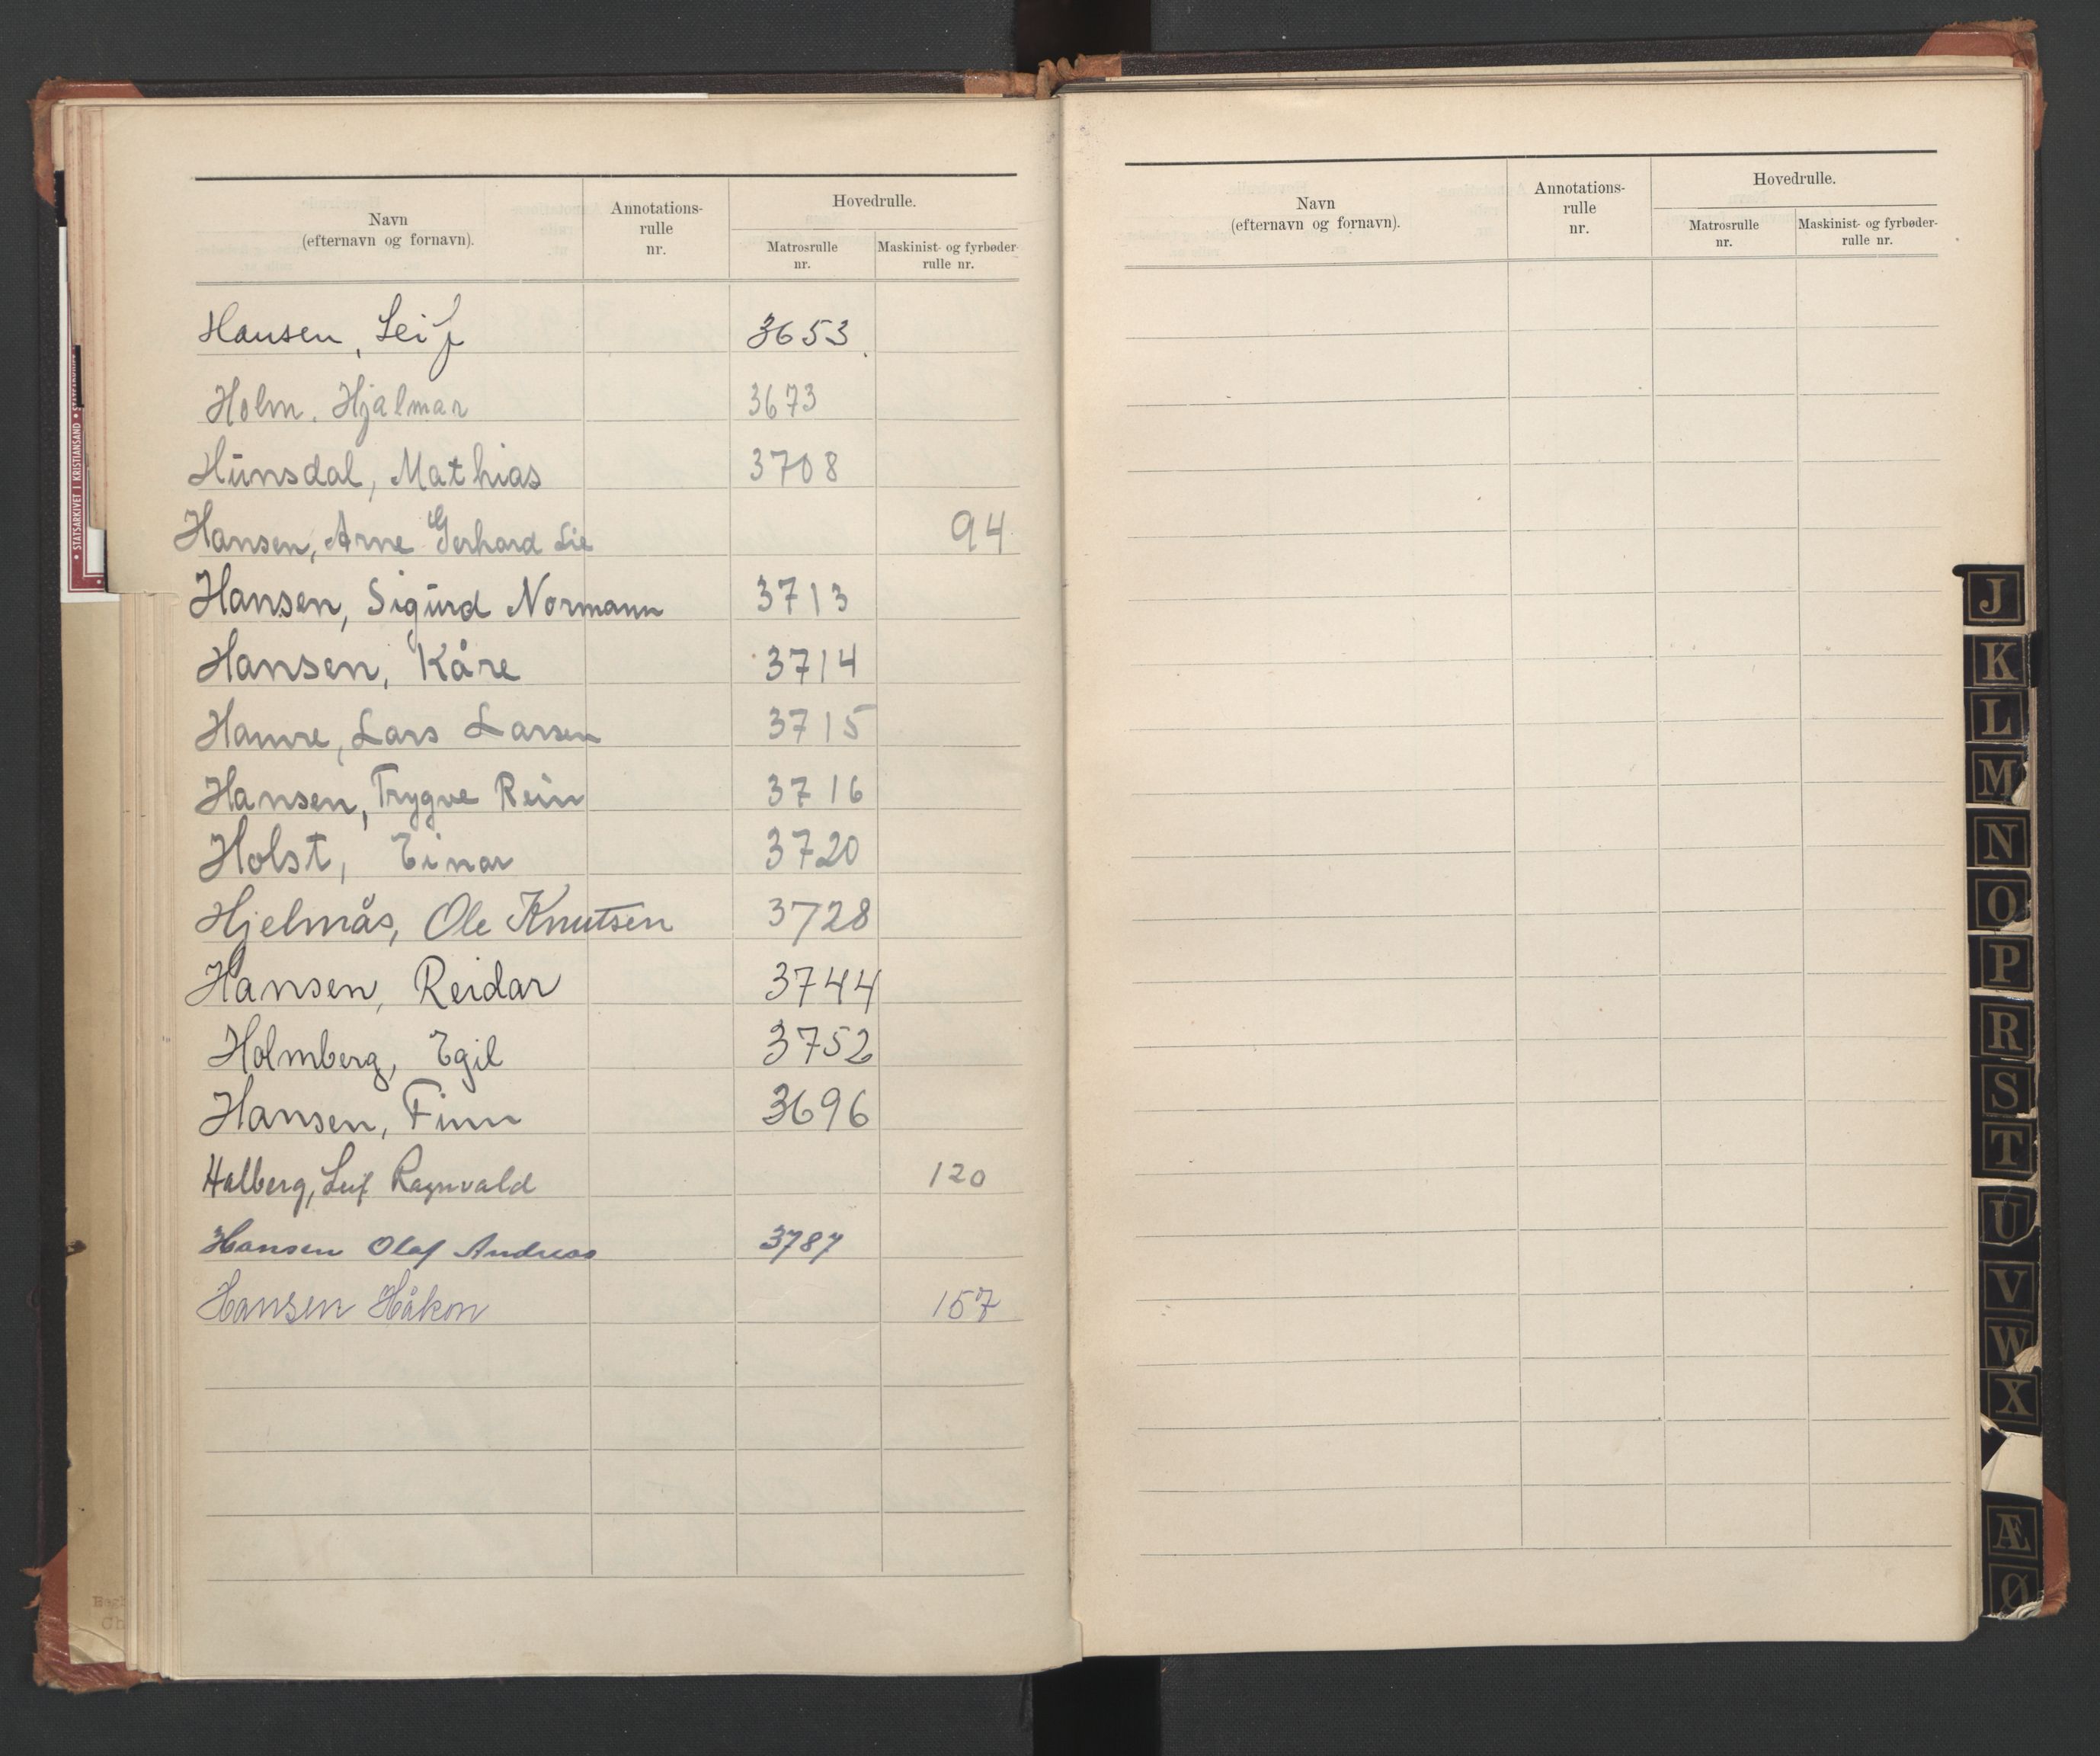 Navn
(efternavn og fornavn).
Annotations-
rulle
nr.
Hovedrulle.
Matrosrulle
nr.
Maskinist- og fyrbøder-
rulle nr.
Hansen, Leif 3653
Holm. Hjalmar 3673
Hunsdal, Mathias 3708
Hansen, Arne Gerhard Lie 94
Hansen, Sigurd Normann 3713
Hansen, Kåre 3714
Hamre, Lars Larsen 3715
Hansen, Trygve Rein 3716
Holst, Einar 3720
Hjelmås, Ole Knutsen 3728
Hansen, Reidar 3744
Holmberg, Egil 3752
Hansen, Finn 3696
Halberg, Leif Ragnvald 120
Hansen Olaf Andreas 3787
Hansen Håkon 157
Navn
(efternavn og fornavn).
Annotations-
rulle
nr.
Hovedrulle.
Matrosrulle
nr.
Maskinist- og fyrbøder-
rulle nr.
J
K
L
M
N
O
P
R
S
T
U
V
W
X
Æ
Ø
• STATSARKIVET I KRISTIANSAND •